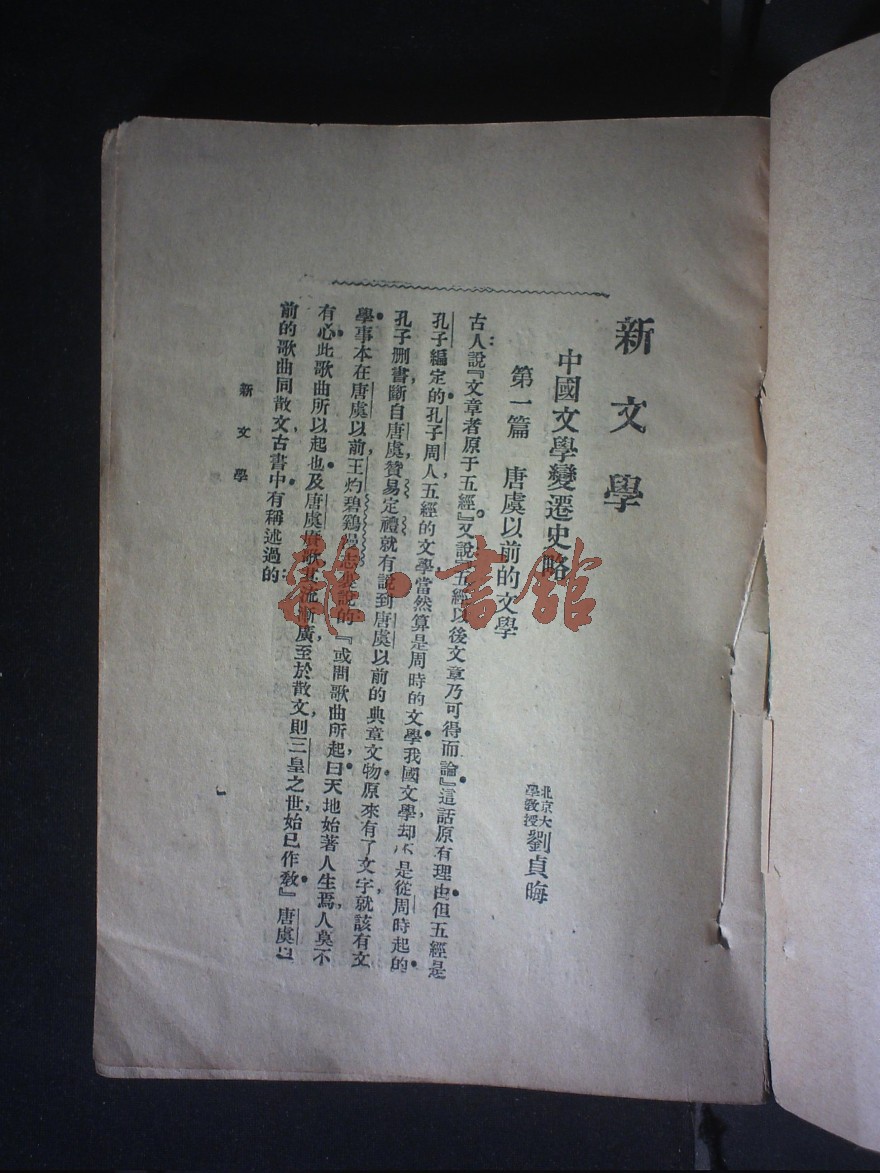 新文學
中國文學變遷史略
北京大學教授 劉貞晦
第一篇 唐虞以前的文學
古人說:『文章者原于五經。』又說『五經以後文章乃可得而論』這話原有理由但五經是
孔子編定的孔子周人五經的文學當然算是周時的文學我國文學却不是從周時起的
孔子刪書斷自唐虞贊易定禮就有說到唐虞以前的典章文物原來有了文字就該有文
學事本在唐虞以前王灼碧鷄漫志說的『或問歌曲所起曰天地始著人生焉人莫不
有心此歌曲所以起也及唐虞賡歌其流漸廣至於散文則三皇之世始已作教』唐虞以
前的歌曲同散文古書中有稱述過的:
新文學
雜·書館